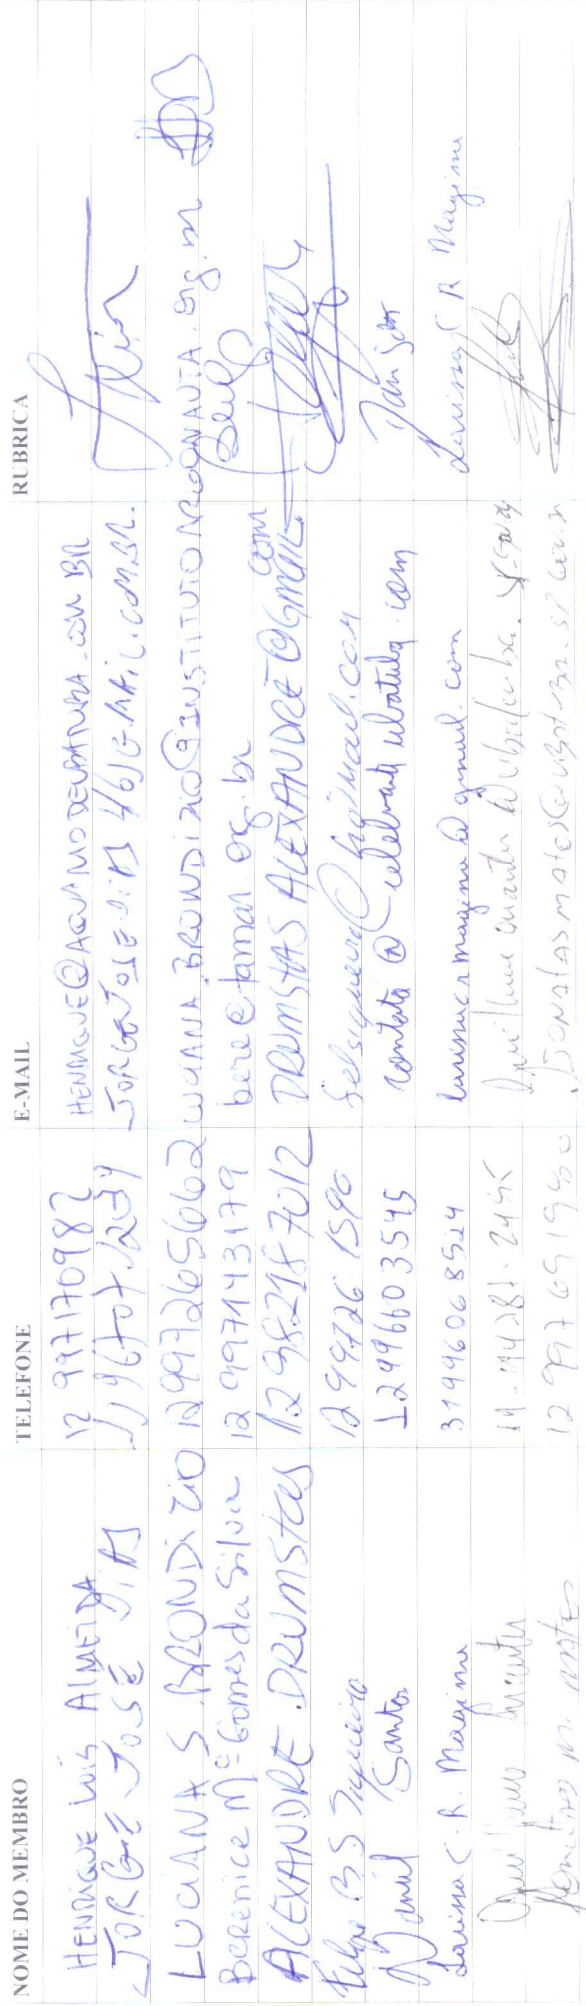 NOME DO MEMBRO TELEFONE E-MAIL RUBRICA
HENRIQUE LUIS ALMEIDA 12 997170982 HENRIQUE@AQUAMODEUBATUBA.COM.BR
JORGE JOSÉ DIAS
LUCIANA S. BRONDIZIO 12997265662 LUCIANA.BRONDIZIO@INSTITUTOARGONAUTA.org.br
Berenice Mª Gomes da Silva 12 997143179 bere@tamar.org.br
ALEXANDRE DRUMSTAS 12 98218 7012 DRUMSTAS ALEXANDRE@GMAIL.com
Felipe B S Siqueira 12 99726 1590 felsiqueira@hotmail.com
Daniel Santos 12 99660 3545 contato@celebrandoubatuba.com
Larissa C. R. Magime 31996068524 larissacrmagime@gmail.com Larissa C R Magime
12 997691980